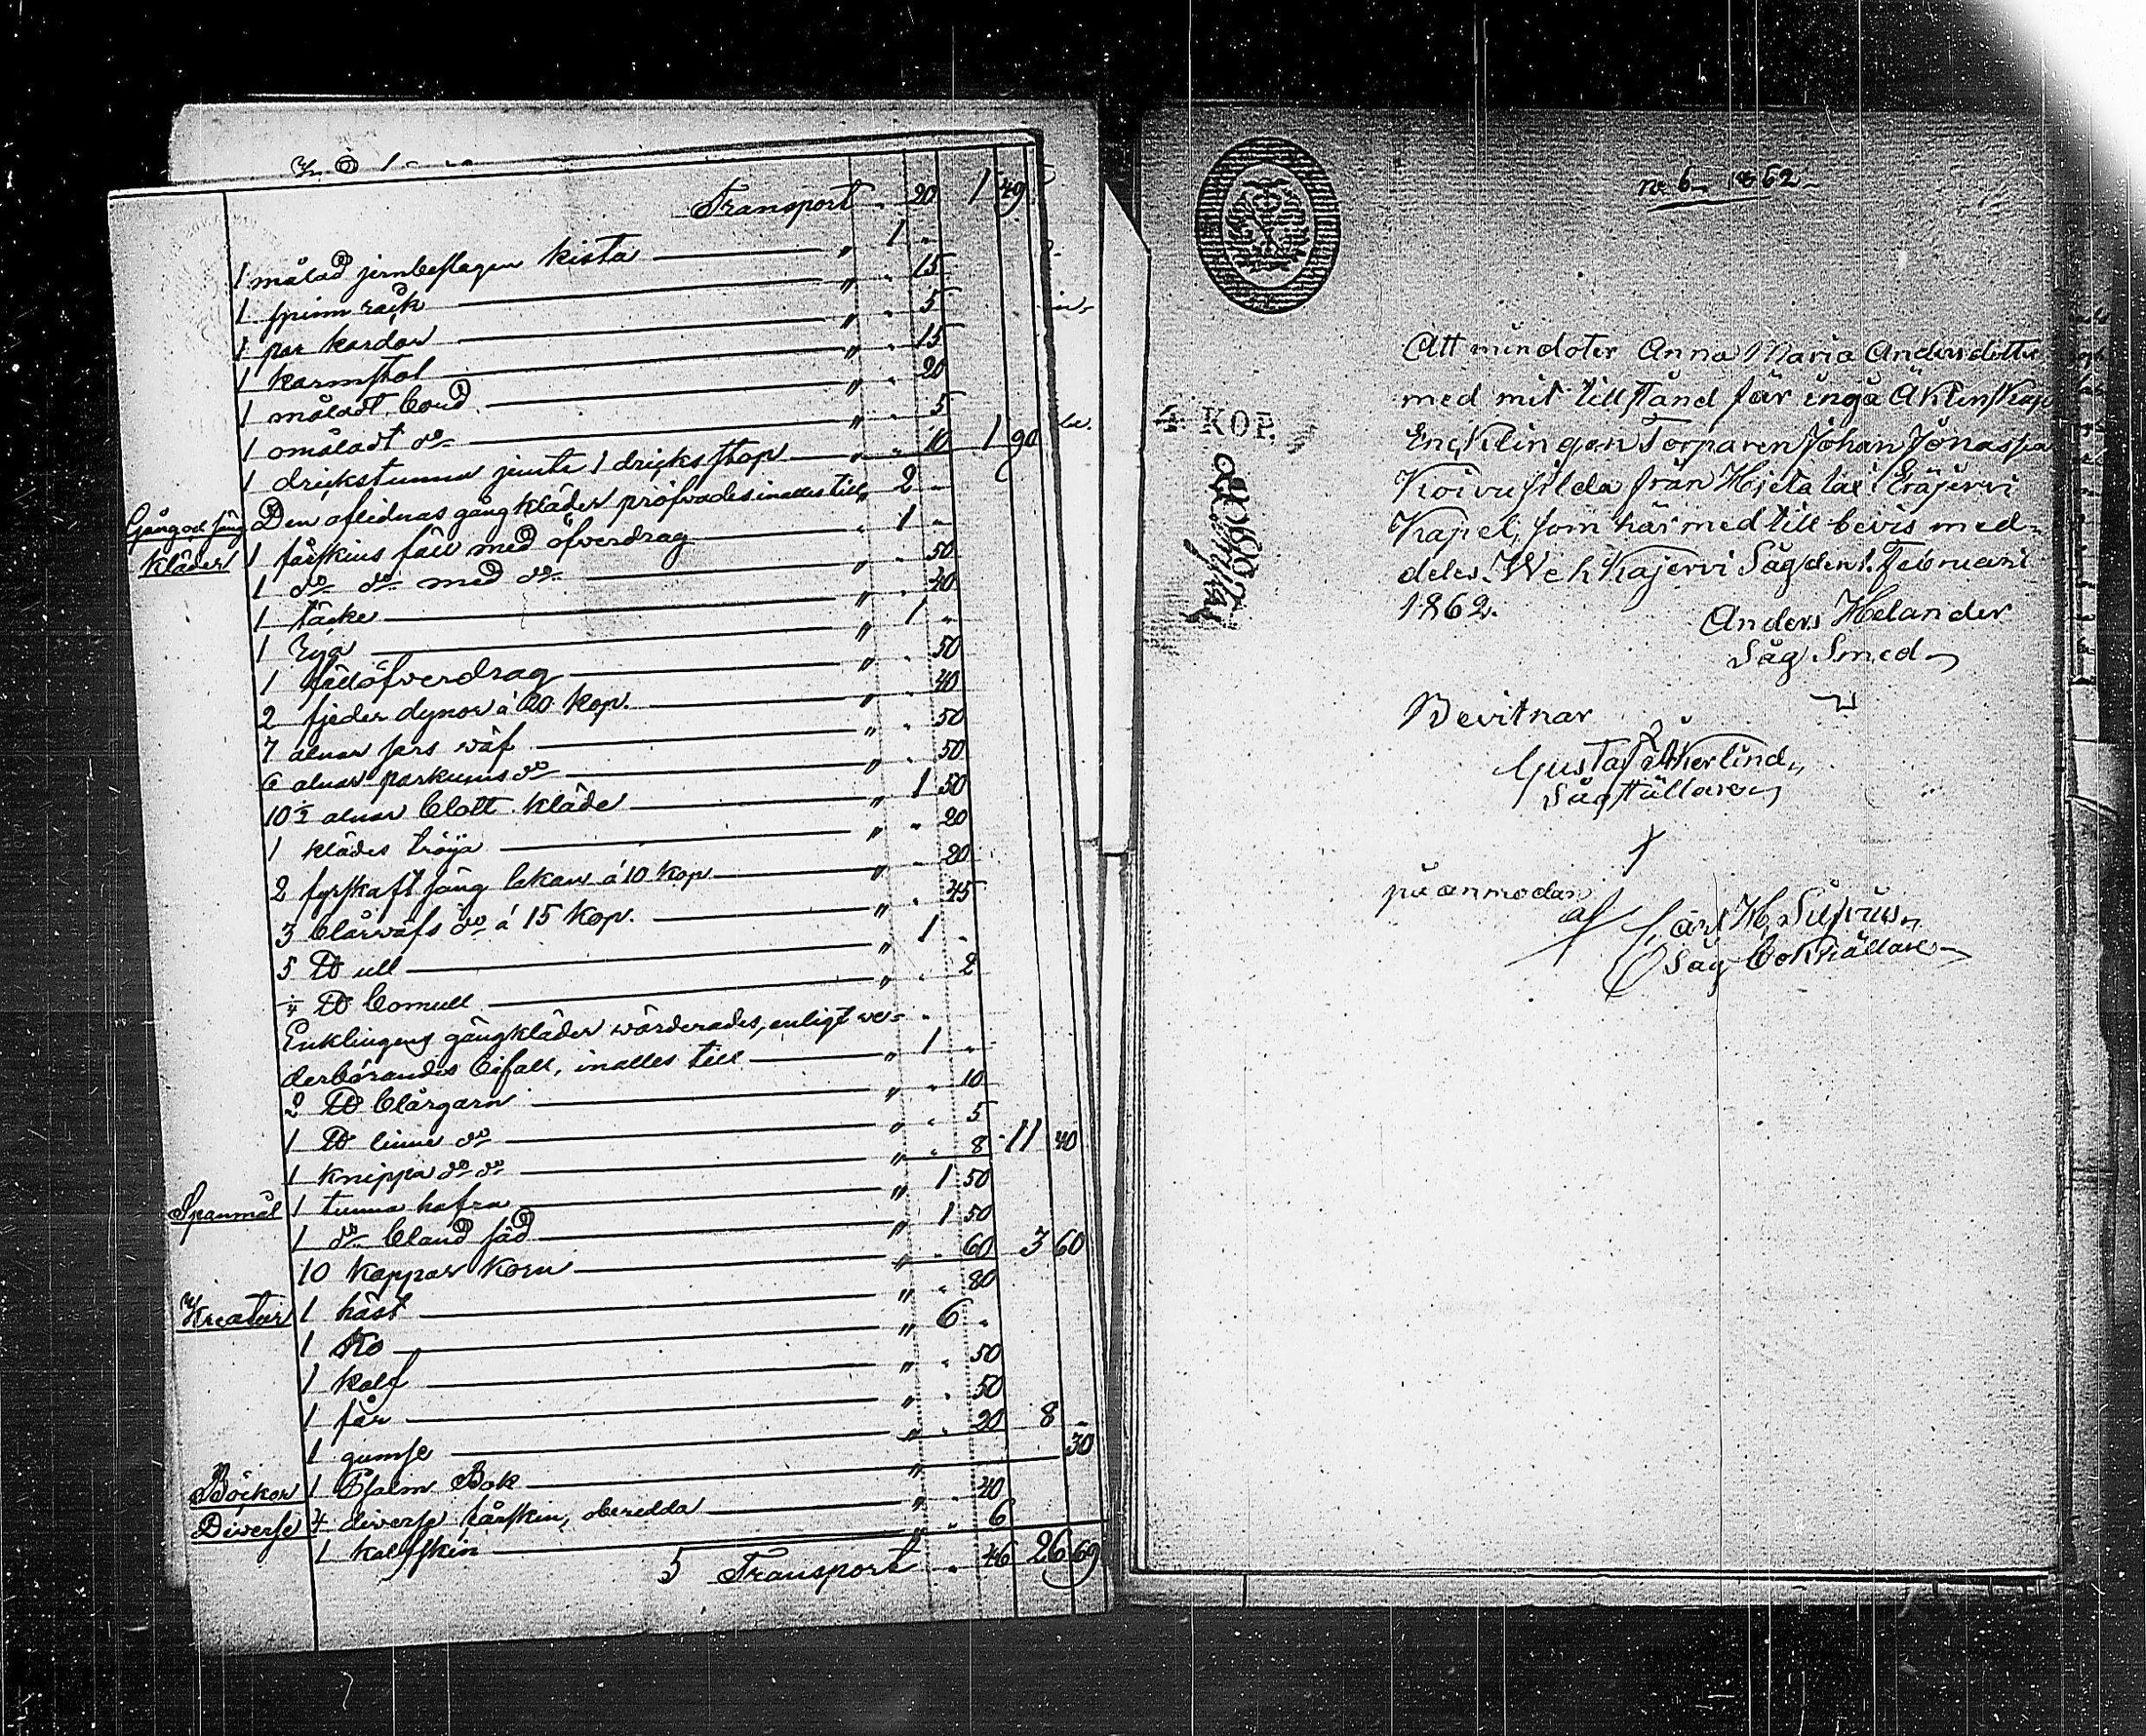 Transport " 20 1 49
1 målad jernbeslagen kista " 1 "
1 spinn råck " " 15
1 par kardor " " 5
1 karmstol " " 15
1 måladt bord " " 20
1 omåladt do " " 5
1 drickstunna jemte 1 dricks stop " " 10 1 90
Gång och säng Den aflidnas gångkläder pröfvades inalles till " 2 "
kläder 1 fårskins fäll med öfverdrag " 1 "
1 do do med do " " 50
1 täcke " " 40
1 Rya " 1 "
1 fällöfverdrag " " 50
2 fjeder dynor á 20 kop. " " 40
7 alnar sars wäf " " 50
6 alnar parkums do " " 50
10 1/2 alnar blott kläde " 1 50
1 klädes tröja " " 20
2 fyrskaft säng lakan á 10 kop " " 20
3 blårwäfs do á 15 kop. " " 45
5 ℔ ull " 1 "
1/4 ℔ bomull " " 2
Enklingens gångkläder wärderades, enligt we-
derbörandes bifall, inalles till " 1 "
2 ℔ blårgarn " " 10
1 ℔ linne do " " 5
1 knippa do do " " 8 11 40
Spanmål 1 tunna hafra " 1 50
1 do bland säd " 1 50
10 kappar korn " " 60 3 60
Kreatur 1 häst " " 80
1 ko " 6 "
1 kalf " " 50
1 får " " 50
1 gumse " " 20 8 "
Böcker 1 Psalm Bok " 30
Diverse 4 diverse fårskin, oberedda " " 40
1 kalfskin " " 6
5 Transport " 46 26 69
no 6 1862
4 KOP.
Att min doter Anna Maria Andersdotter
med mit tillstånd får ingå Äktenskap
Encklingen Torparen Johan Jonasson
Koivusilda från Hjetalax i Eräjervi
Kapel, som härmed till bevis med-
deles. Wehkajervi Såg den 1. Februari
1862.
Anders Helander
Såg Smed
Bevitnar
Gustaf Åkerlind
Sågställare
på anmodan
af Carl H.
Såg Bokhållare